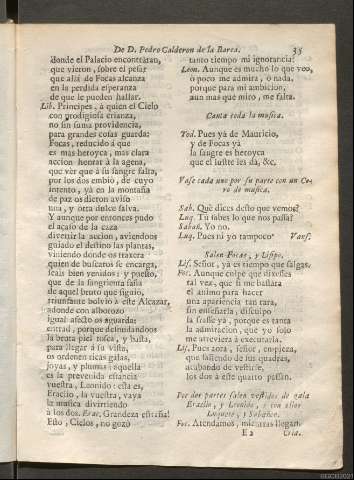 De D. Pedro Calderon de la Barca. 35
donde el Palacio encontraran,
que vieron, sobre el pesar
que allá de Focas alcanza
en la perdida esperanza
de que le pueden hallar.
Lib. Principes, à quien el Cielo
con prodigiosa crianza,
no sin suma providencia,
para grandes cosas guarda:
Focas, reducido à que
es mas heroyca, mas clara
accion honrar à la agena,
que ver que à su sangre falta,
por los dos embiò, de cuyo
intento, yà en la montaña
de paz os dieron aviso
una, y otra dulce salva.
Y aunque por entonces pudo
el acaso de la caza
divertir la accion, aviendoos
guiado el destino las plantas,
viniendo donde os traxera
quien de buscaros se encarga,
seais bien venidos; y puesto,
que de la sangrienta saña
de aquel bruto que siguiò,
triunfante bolviò à este Alcazar,
adonde con alborozo
igual afecto os aguarda:
entrad, porque desnudandoos
la bruta piel tosca, y basta,
para llegar à su vista,
os ordenen ricas galas,
joyas, y plumas: aquella
es la prevenida estancia
vuestra, Leonido: esta es,
Eraclio, la vuestra, vaya
la musica divirtiendo
à los dos. Erac. Grandeza estraña!
Leo. Esto, Cielos, no gozò
tanto tiempo mi ignorancia!
Leon. Aunque es mucho lo que veo,
ò poco me admira, ò nada,
porque para mi ambicion,
aun mas que miro, me falta.
Canta toda la musica.
Tod. Pues yà de Mauricio,
y de Focas yà
la sangre es heroyca
que el lustre les dà, &c.
Vase cada uno por su parte con un Co-
ro de musica.
Sab. Què dices desto que vemos?
Luq. Tù sabes lo que nos passa?
Sabañ. Yo no.
Luq. Pues ni yo tampoco. Vanse.
Salen Focas, y Lisipo.
Lis. Señor, yà es tiempo que salgas.
Foc. Aunque culpe que dixesses
tal vez, que si me bastàra
el animo para hacer
una apariencia tan rara,
sin enseñarla, discuipo
la frasse yà, porque es tanta
la admiracion, que yo solo
me atreviera à executarla.
Lis. Pues aora, señor, empieza,
que saliendo de sus quadras,
acabando de vestirse,
los dos à este quarto passan.
Por dos partes salen vestidos de gala
Eraclio, y Leonido, y con ellos
Luquete, y Sabañon.
Foc. Atendamos, mientras llegan.
E 2 Cria.